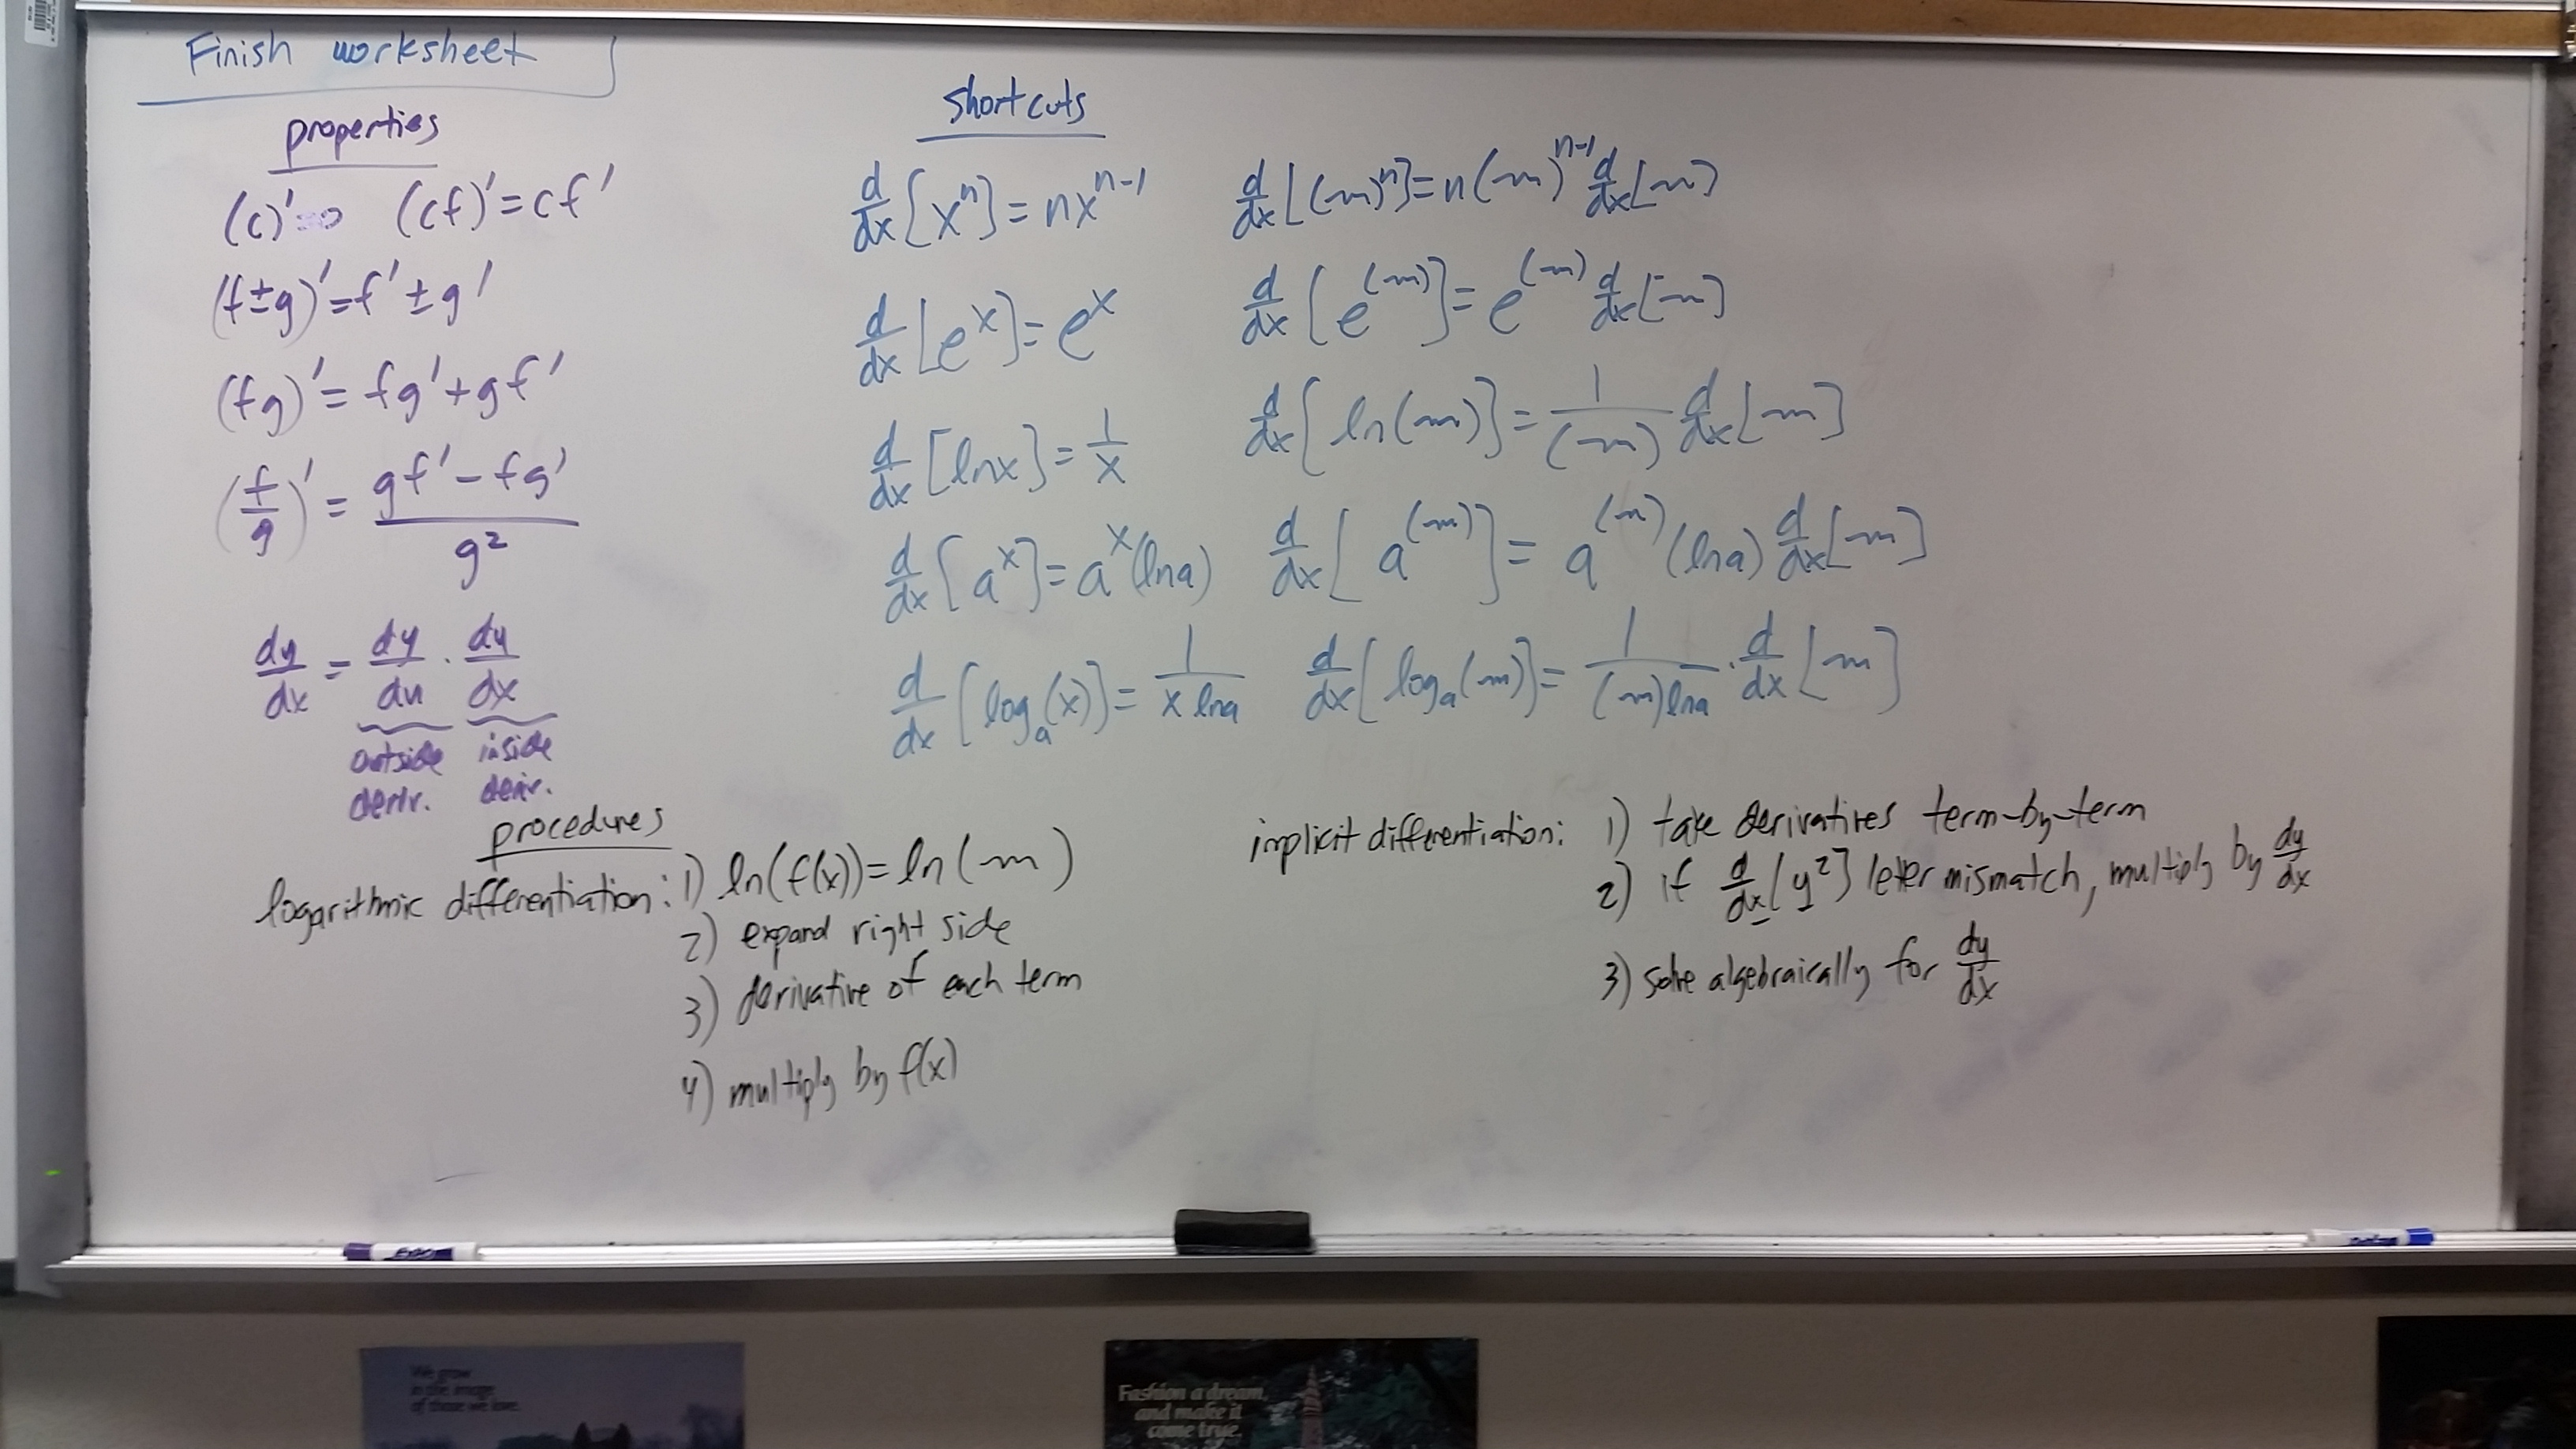 Finish worksheet
properties
(c)'=0 (cf)'=cf'
(f±g)'=f'±g'
(fg)'=fg'+gf'
(f/g)'=(gf'-fg')/g²
dy/dx = dy/du · du/dx
outside inside
deriv. deriv.
shortcuts
d/dx[xⁿ]=nxⁿ⁻¹ d/dx[(~)ⁿ]=n(~)ⁿ⁻¹ d/dx[~]
d/dx[eˣ]=eˣ d/dx[e^(~)]=e^(~) d/dx[~]
d/dx[lnx]=1/x d/dx[ln(~)]=1/(~) d/dx[~]
d/dx[aˣ]=aˣ(lna) d/dx[a^(~)]=a^(~)(lna) d/dx[~]
d/dx[logₐ(x)]=1/(x lna) d/dx[logₐ(~)]=1/((~)lna) · d/dx[~]
procedures
logarithmic differentiation: 1) ln(f(x))=ln(~)
2) expand right side
3) derivative of each term
4) multiply by f(x)
implicit differentiation: 1) take derivatives term-by-term
2) if d/dx[y²] letter mismatch, multiply by dy/dx
3) solve algebraically for dy/dx
EXPO
We grow
in the image
of those we love.
Fashion a dream,
and make it
come true.